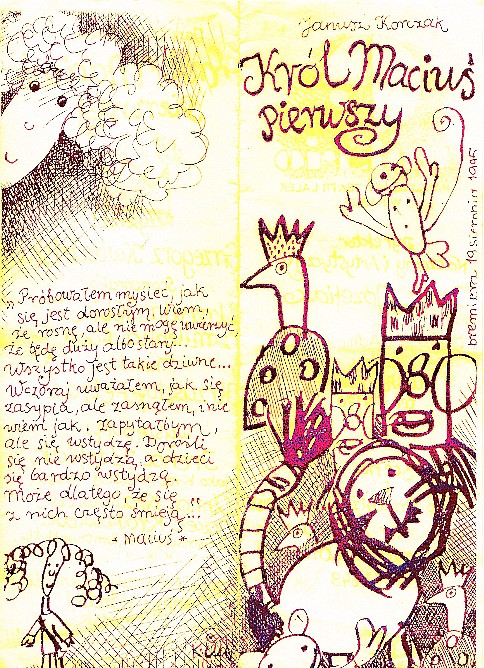 Janusz Korczak
Król Maciuś
pierwszy
premiera 19 sierpnia 1995
„Próbowałem myśleć, jak
się jest dorosłym. Wiem,
że rosnę, ale nie mogę uwierzyć,
że będę duży albo stary...
Wszystko jest takie dziwne...
Wczoraj uważałem, jak się
zasypia, ale zasnąłem, i nie
wiem jak. Zapytałbym,
ale się wstydzę. Dorośli
się nie wstydzą, a dzieci
się bardzo wstydzą.
Może dlatego, że się
z nich często śmieją..."
* Maciuś *